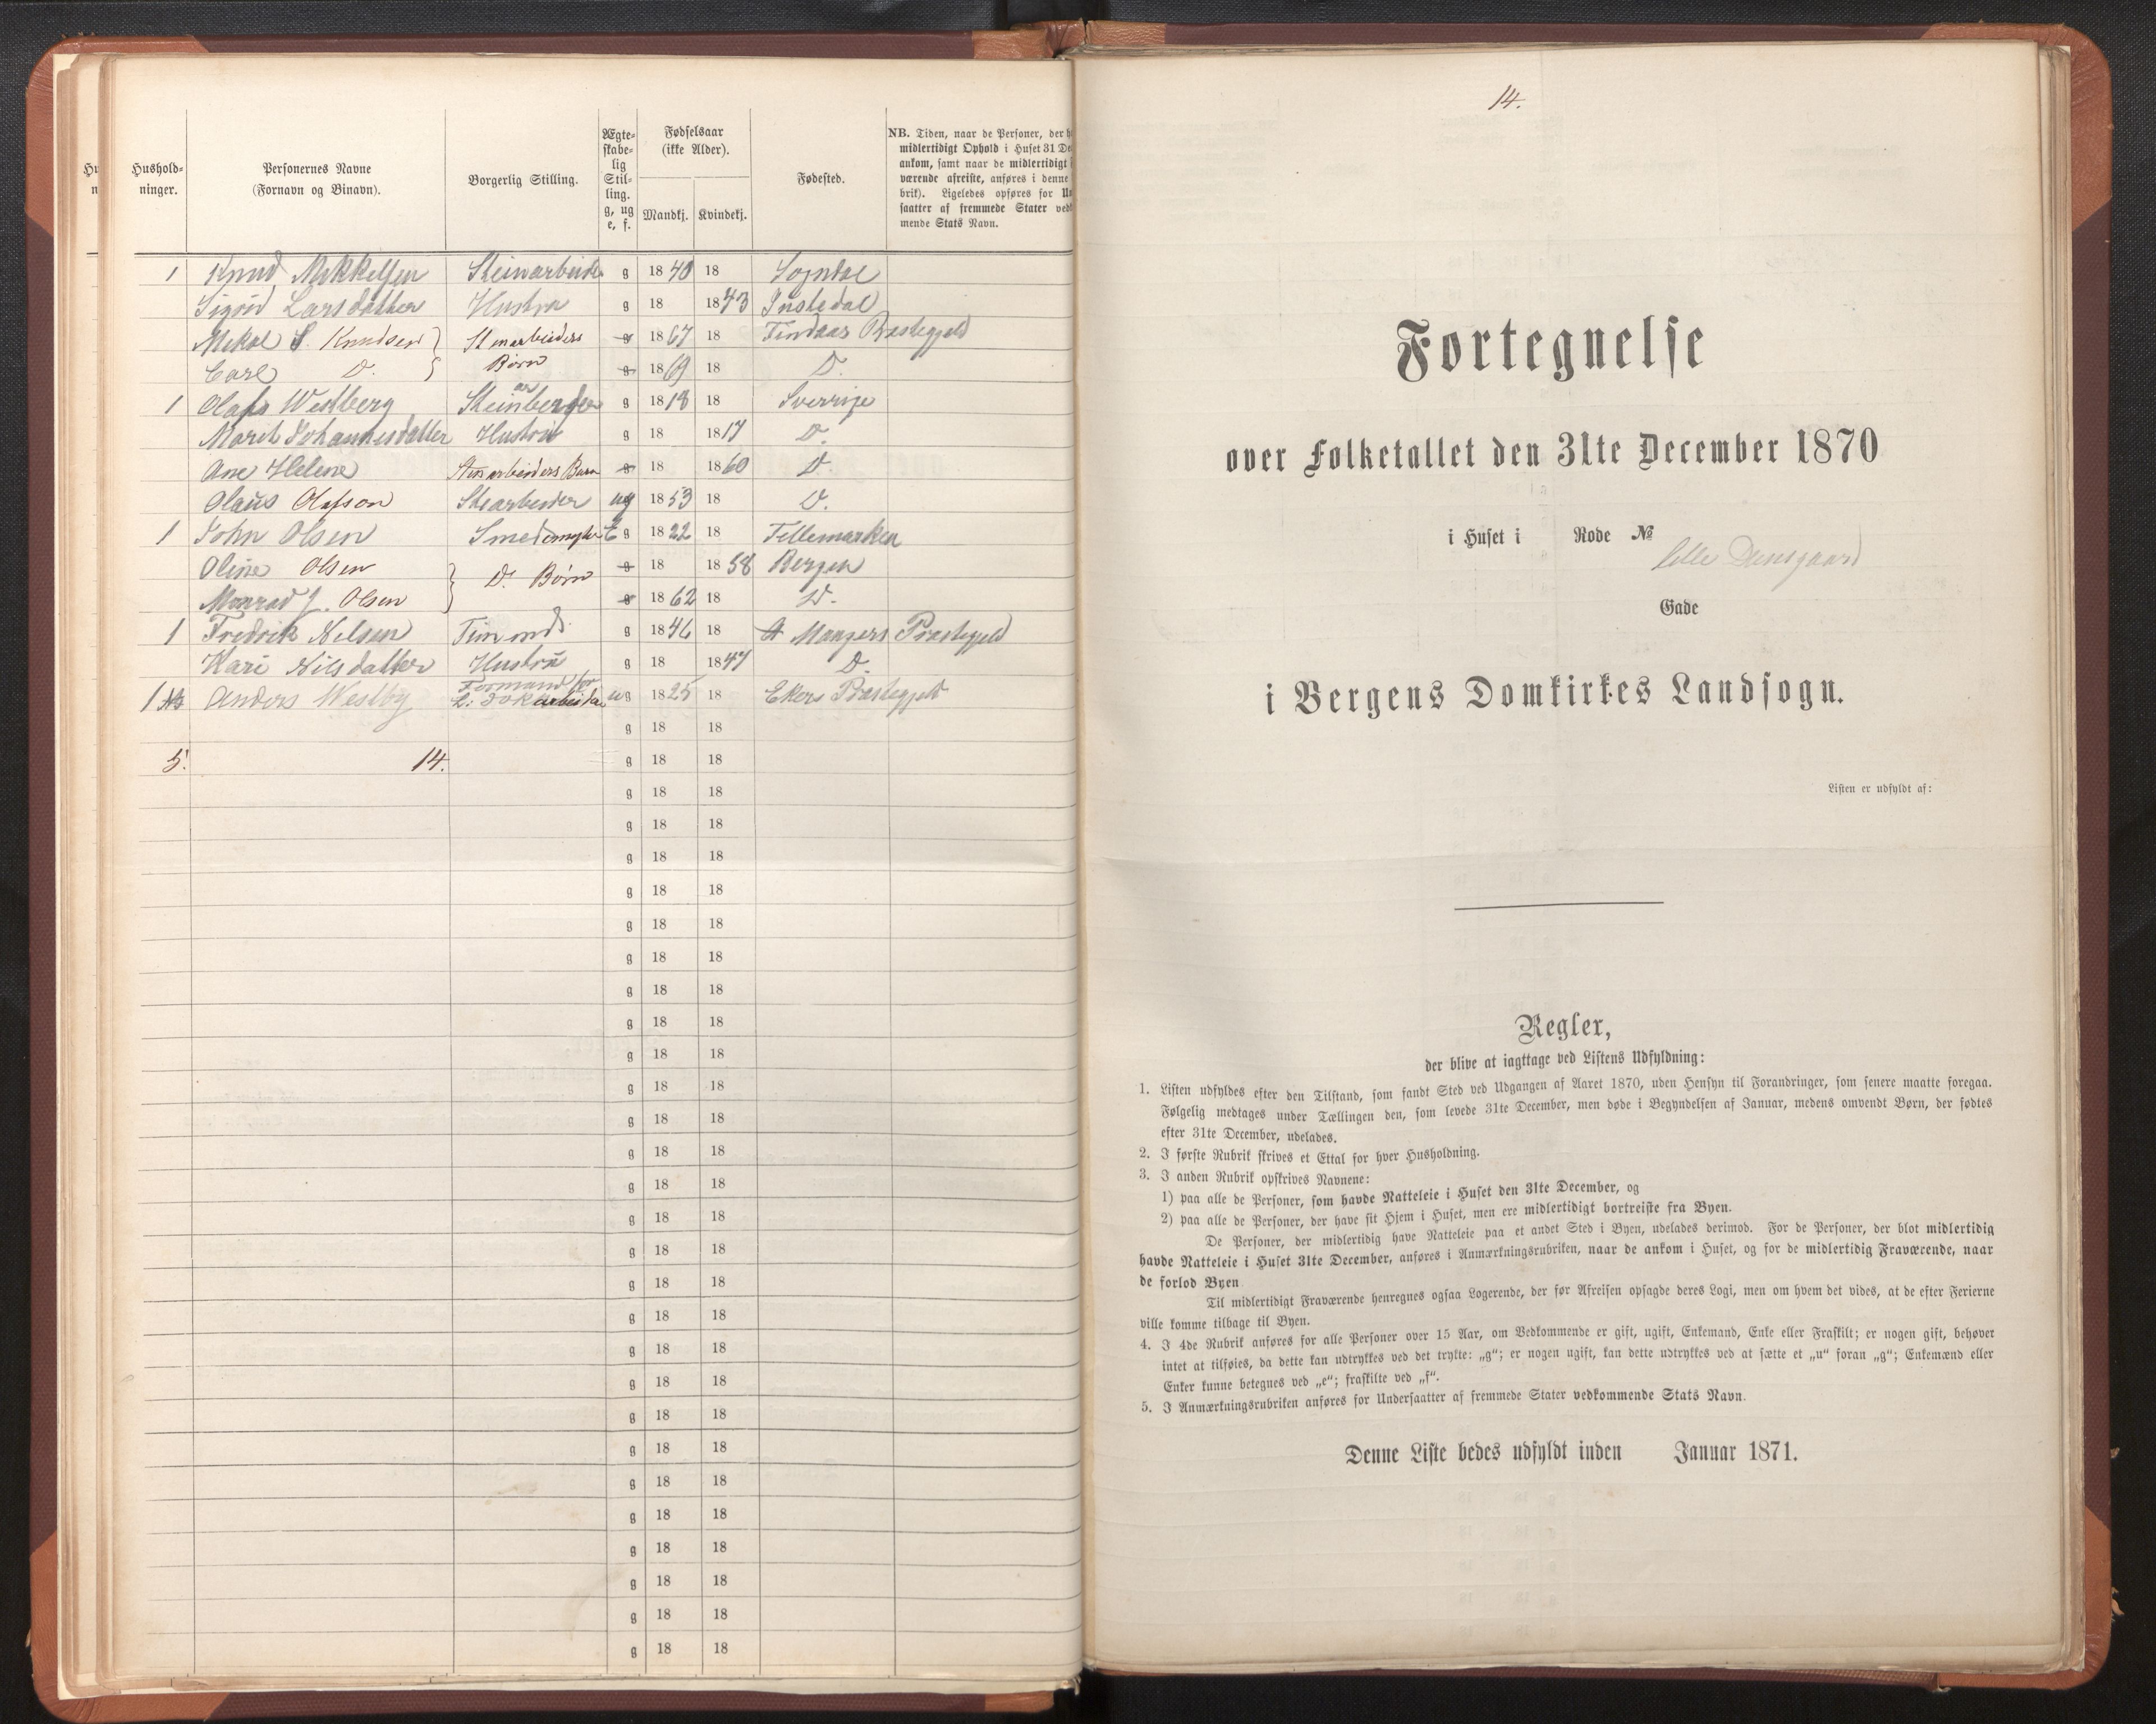 Hushold-
ninger.
Personernes Navne
(Fornavn og Binavn).
Borgerlig Stilling.
Ægte-
skabe-
lig
Stil-
ling.
g, ug
e, f.
Fødselsaar
(ikke Alder).
Mandkj. Kvindekj.
Fødested.
NB. Tiden, naar de Personer, der
midlertidigt Ophold i Huset 31
ankom, samt naar de midlertidigt
værende afreiste, anføres i denne
brik). Ligeledes opføres for
saatter af fremmede Stater
mende Stats Navn.
1 Knud Mikkelsen g 1840 18 Sogndal
Sigrid Larsdatter Hustru g 18 1843 Justedal
Mikal S. Knudsen Stenarbeiders g 1867 18 Præstegjeld
Carl D. Børn g 1869 18 D.
1 Westberg g 1818 18 Sverrige
Marit Johannesdatter Hustru g 18 1817 D.
Ane Helene Stenarbeiders Barn g 18 1860 D.
Olaus Olafson ug 1853 18 D.
1 John Olsen E g 1822 18 Tellemarken
Oline Olsen g 18 1858 Bergen
D. Børn
Monrad J. Olsen g 1862 18 D.
1 Fredrik Nilsen g 1846 18 Mangers Præstegjeld
Kari Nilsdatter Hustru g 18 1847 D.
Formand for
1 Anders Westby ug 1825 18 Ekers Præstegjeld
g 18 18
5. 14. g 18 18
g 18 18
g 18 18
g 18 18
g 18 18
g 18 18
g 18 18
g 18 18
g 18 18
g 18 18
g 18 18
g 18 18
g 18 18
g 18 18
g 18 18
g 18 18
g 18 18
g 18 18
g 18 18
g 18 18
g 18 18
g 18 18
g 18 18
g 18 18
g 18 18
g 18 18
g 18 18
g 18 18
g 18 18
14.
Fortegnelse
over Folketallet den 31te December 1870
i Huset i Rode №
Gade
i Bergens Domkirkes Landsogn.
Listen er udfyldt af:
Regler,
der blive at iagttage ved Listens Udfyldning:
1. Listen udfyldes efter den Tilstand, som fandt Sted ved Udgangen af Aaret 1870, uden Hensyn til Forandringer, som senere maatte foregaa.
Følgelig medtages under Tællingen den, som levede 31te December, men døde i Begyndelsen af Januar, medens omvendt Børn, der fødtes
efter 31te December, udelades.
2. I første Rubrik skrives et Ettal for hver Husholdning.
3. I anden Rubrik opskrives Navnene:
1) paa alle de Personer, som havde Natteleie i Huset den 31te December, og
2) paa alle de Personer, der have sit Hjem i Huset, men ere midlertidigt bortreiste fra Byen.
De Personer, der midlertidig have Natteleie paa et andet Sted i Byen, udelades derimod. For de Personer, der blot midlertidig
havde Natteleie i Huset 31te December, anføres i Anmærkningsrubriken, naar de ankom i Huset, og for de midlertidig Fraværende, naar
de forlod Byen.
Til midlertidigt Fraværende henregnes ogsaa Logerende, der før Afreisen opsagde deres Logi, men om hvem det vides, at de efter Ferierne
ville komme tilbage til Byen.
4. I 4de Rubrik anføres for alle Personer over 15 Aar, om Vedkommende er gift, ugift, Enkemand, Enke eller Fraskilt; er nogen gift, behøver
intet at tilføies, da dette kan udtrykkes ved det trykte: „g“; er nogen ugift, kan dette udtrykkes ved at sætte et „u“ foran „g“; Enkemænd eller
Enker kunne betegnes ved „e“; fraskilte ved „f“.
5. I Anmærkningsrubriken anføres for Undersaatter af fremmede Stater vedkommende Stats Navn.
Denne Liste bedes udfyldt inden Januar 1871.